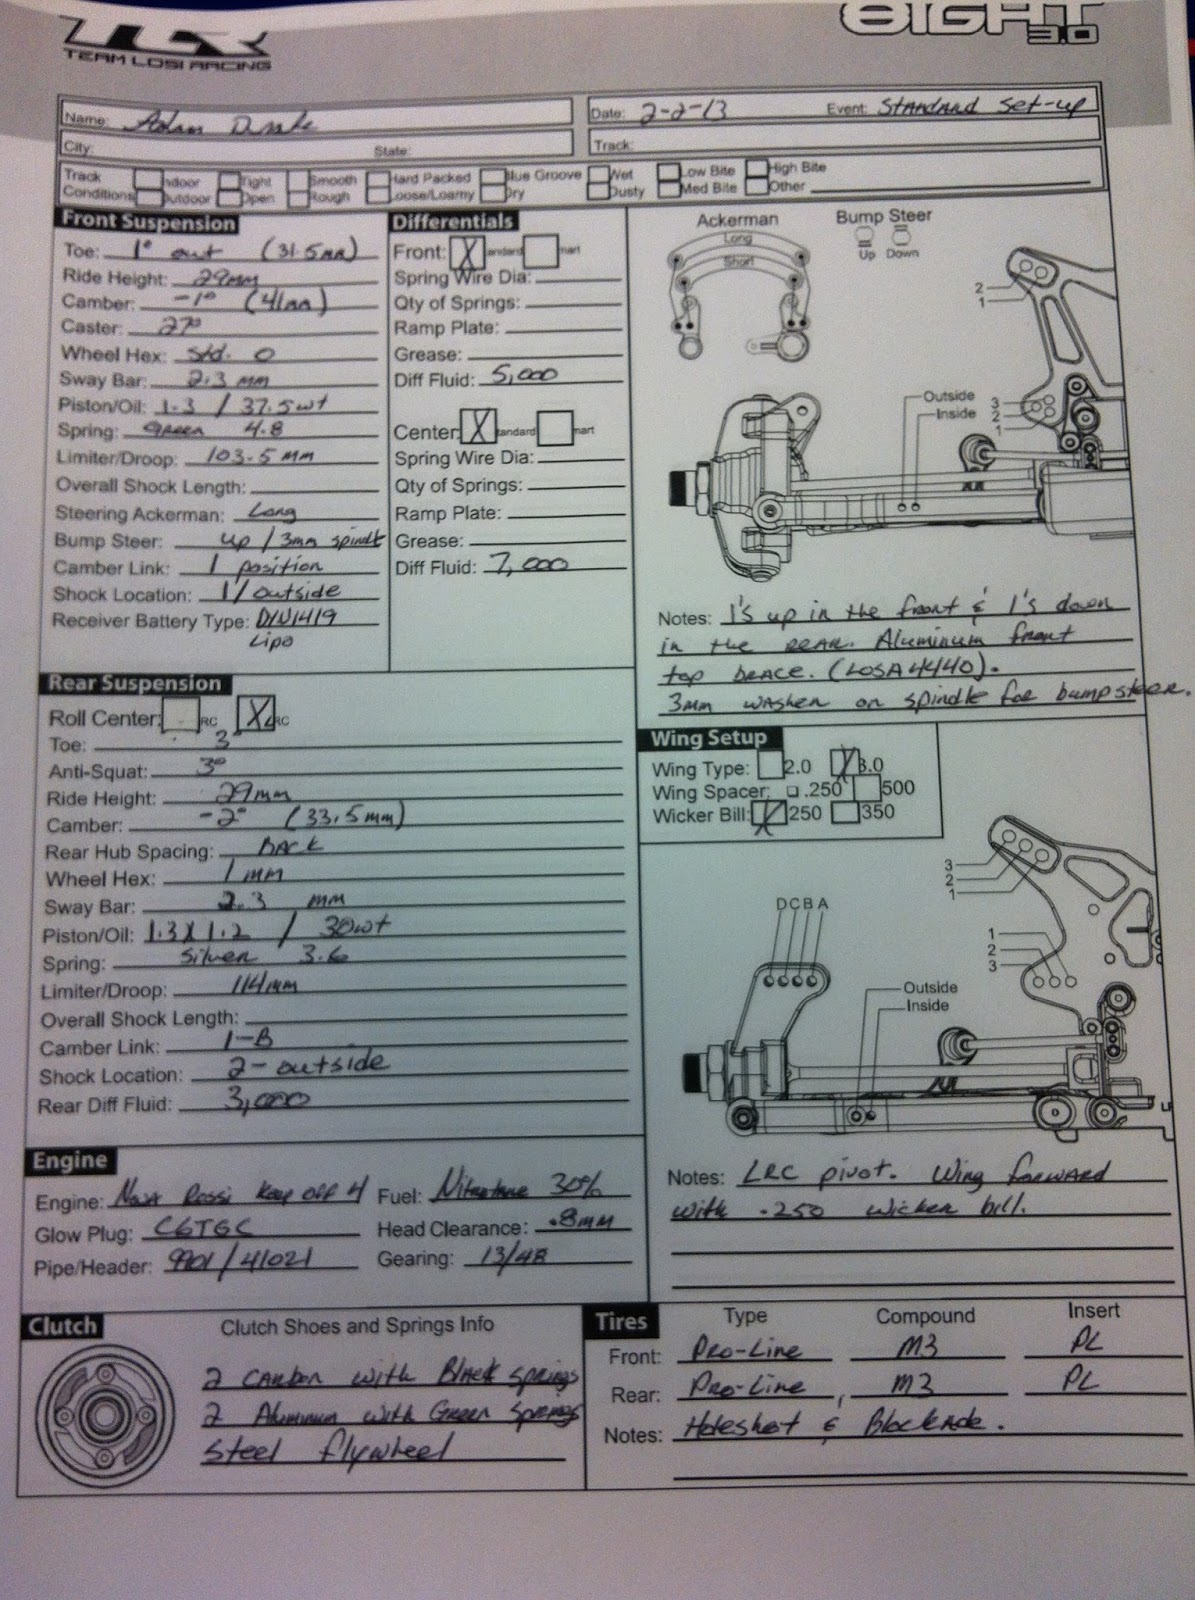 TLR
TEAM LOSI RACING
8IGHT 3.0
Name: Adam Drake
Date: 2-2-13 Event: Standard Set-up
City: State:
Track:
Track Conditions: Indoor Tight Smooth Hard Packed Blue Groove Wet Low Bite High Bite
Outdoor Open Rough Loose/Loamy Dry Dusty Med Bite Other
Front Suspension
Toe: 1° out (31.5mm)
Ride Height: 29mm
Camber: -1° (41mm)
Caster: 27°
Wheel Hex: Std. 0
Sway Bar: 2.3 mm
Piston/Oil: 1.3 / 37.5wt
Spring: Green 4.8
Limiter/Droop: 103.5 mm
Overall Shock Length:
Steering Ackerman: Long
Bump Steer: up / 3mm spindle
Camber Link: 1 position
Shock Location: 1/outside
Receiver Battery Type: DYN1419
Lipo
Differentials
Front: X andard mart
Spring Wire Dia:
Qty of Springs:
Ramp Plate:
Grease:
Diff Fluid: 5,000
Center: X tandard mart
Spring Wire Dia:
Qty of Springs:
Ramp Plate:
Grease:
Diff Fluid: 7,000
Ackerman
Long
Short
Bump Steer
Up Down
2
1
Outside
Inside
3
2
1
Notes: 1's up in the front & 1's down
in the rear. Aluminum front
top brace. (LOSA4440).
3mm washer on spindle for bumpsteer.
Rear Suspension
Roll Center: RC X LRC
Toe: 3°
Anti-Squat: 3°
Ride Height: 29mm
Camber: -2° (33.5mm)
Rear Hub Spacing: Back
Wheel Hex: 1mm
Sway Bar: 2.3 mm
Piston/Oil: 1.3 X 1.2 / 30wt
Spring: Silver 3.6
Limiter/Droop: 114mm
Overall Shock Length:
Camber Link: 1-B
Shock Location: 2-outside
Rear Diff Fluid: 3,000
Wing Setup
Wing Type: 2.0 X 3.0
Wing Spacer: .250 500
Wicker Bill: X 250 350
3
2
1
1
2
3
D C B A
Outside
Inside
Notes: LRC pivot. Wing forward
with .250 wicker bill.
Engine
Engine: Nova Rossi Keep off 4 Fuel: Nitrotane 30%
Glow Plug: C6TGC Head Clearance: .8mm
Pipe/Header: 9901/41021 Gearing: 13/48
Clutch
Clutch Shoes and Springs Info
2 carbon with Black springs
2 Aluminum with Green springs
Steel flywheel
Tires Type Compound Insert
Front: Pro-Line M3 PL
Rear: Pro-Line M3 PL
Notes: Holeshot & Blockade.